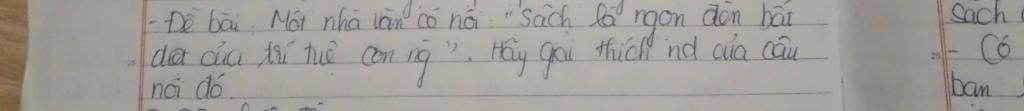 - Đề bài. Một nhà văn có nói: "Sách là ngọn đồn bất
diệt của trí tuệ con ng". Hãy giải thích nd của câu
nói đó
sách
- Có
ban